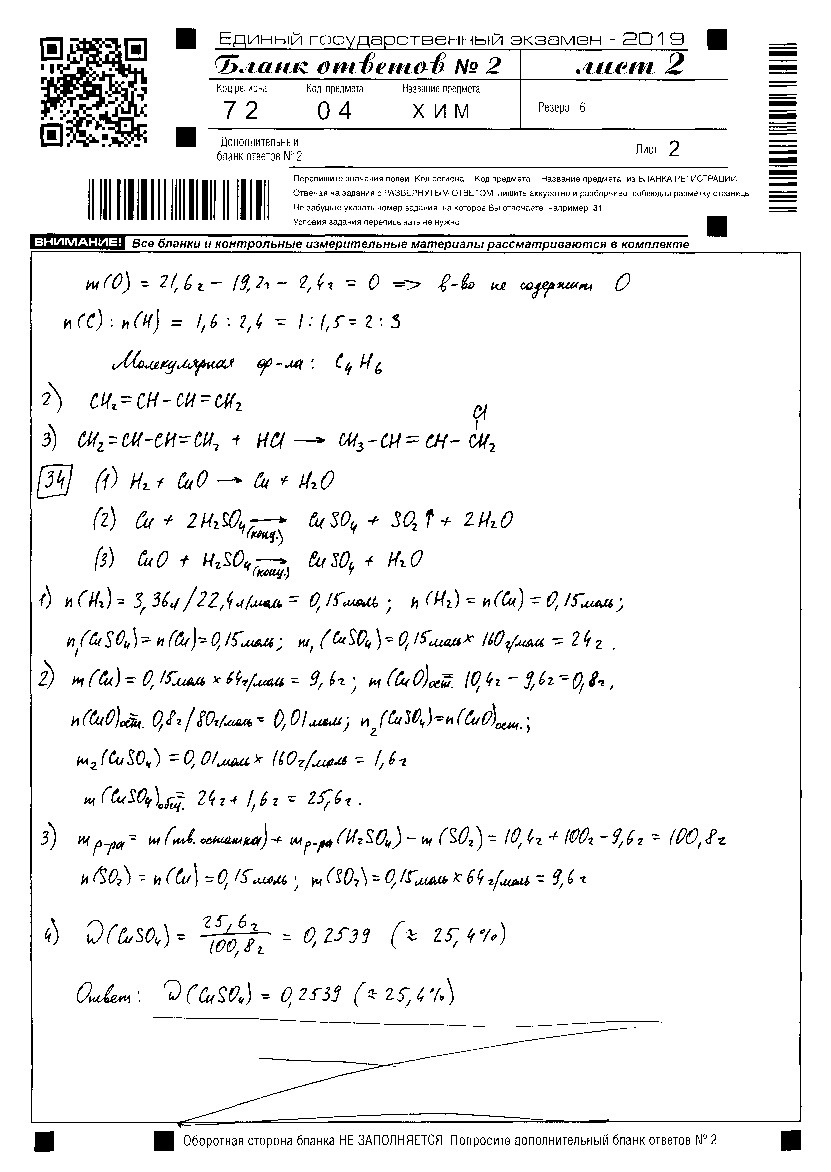 Единый государственный экзамен - 2019
Бланк ответов № 2 лист 2
Код региона Код предмета Название предмета
72 04 ХИМ Резерв - 6
Дополнительный
бланк ответов № 2 Лист 2
Перепишите значения полей "Код региона", "Код предмета", "Название предмета" из БЛАНКА РЕГИСТРАЦИИ.
Отвечая на задания с РАЗВЕРНУТЫМ ОТВЕТОМ, пишите аккуратно и разборчиво, соблюдая разметку страницы.
Не забудьте указать номер задания, на которое Вы отвечаете, например, 31
Условия задания переписывать не нужно
ВНИМАНИЕ! Все бланки и контрольные измерительные материалы рассматриваются в комплекте
m(O) = 21,6г - 19,2г - 2,4г = 0 => в-во не содержит O
n(C) : n(H) = 1,6 : 2,4 = 1 : 1,5 = 2 : 3
Молекулярная ф-ла: C₄H₆
2) CH₂=CH-CH=CH₂
Cl
3) CH₂=CH-CH=CH₂ + HCl → CH₃-CH=CH-CH₂
34 (1) H₂ + CuO → Cu + H₂O
(2) Cu + 2H₂SO₄(конц.) → CuSO₄ + SO₂↑ + 2H₂O
(3) CuO + H₂SO₄(конц.) → CuSO₄ + H₂O
1) n(H₂) = 3,36л/22,4л/моль = 0,15моль; n(H₂) = n(Cu) = 0,15моль;
n₁(CuSO₄) = n(Cu) = 0,15моль; m₁(CuSO₄) = 0,15моль × 160г/моль = 24г.
2) m(Cu) = 0,15моль × 64г/моль = 9,6г; m(CuO)ост. = 10,4г - 9,6г = 0,8г,
n(CuO)ост. = 0,8г/80г/моль = 0,01моль; n₂(CuSO₄) = n(CuO)ост.;
m₂(CuSO₄) = 0,01моль × 160г/моль = 1,6г
m(CuSO₄)общ. = 24г + 1,6г = 25,6г.
3) mр-ра = m(тв. остатка) + mр-ра(H₂SO₄) - m(SO₂) = 10,4г + 100г - 9,6г = 100,8г
n(SO₂) = n(Cu) = 0,15моль; m(SO₂) = 0,15моль × 64г/моль = 9,6г
4) ω(CuSO₄) = 25,6г/100,8г = 0,2539 (≈ 25,4%)
Ответ: ω(CuSO₄) = 0,2539 (≈ 25,4%)
Оборотная сторона бланка НЕ ЗАПОЛНЯЕТСЯ. Попросите дополнительный бланк ответов № 2